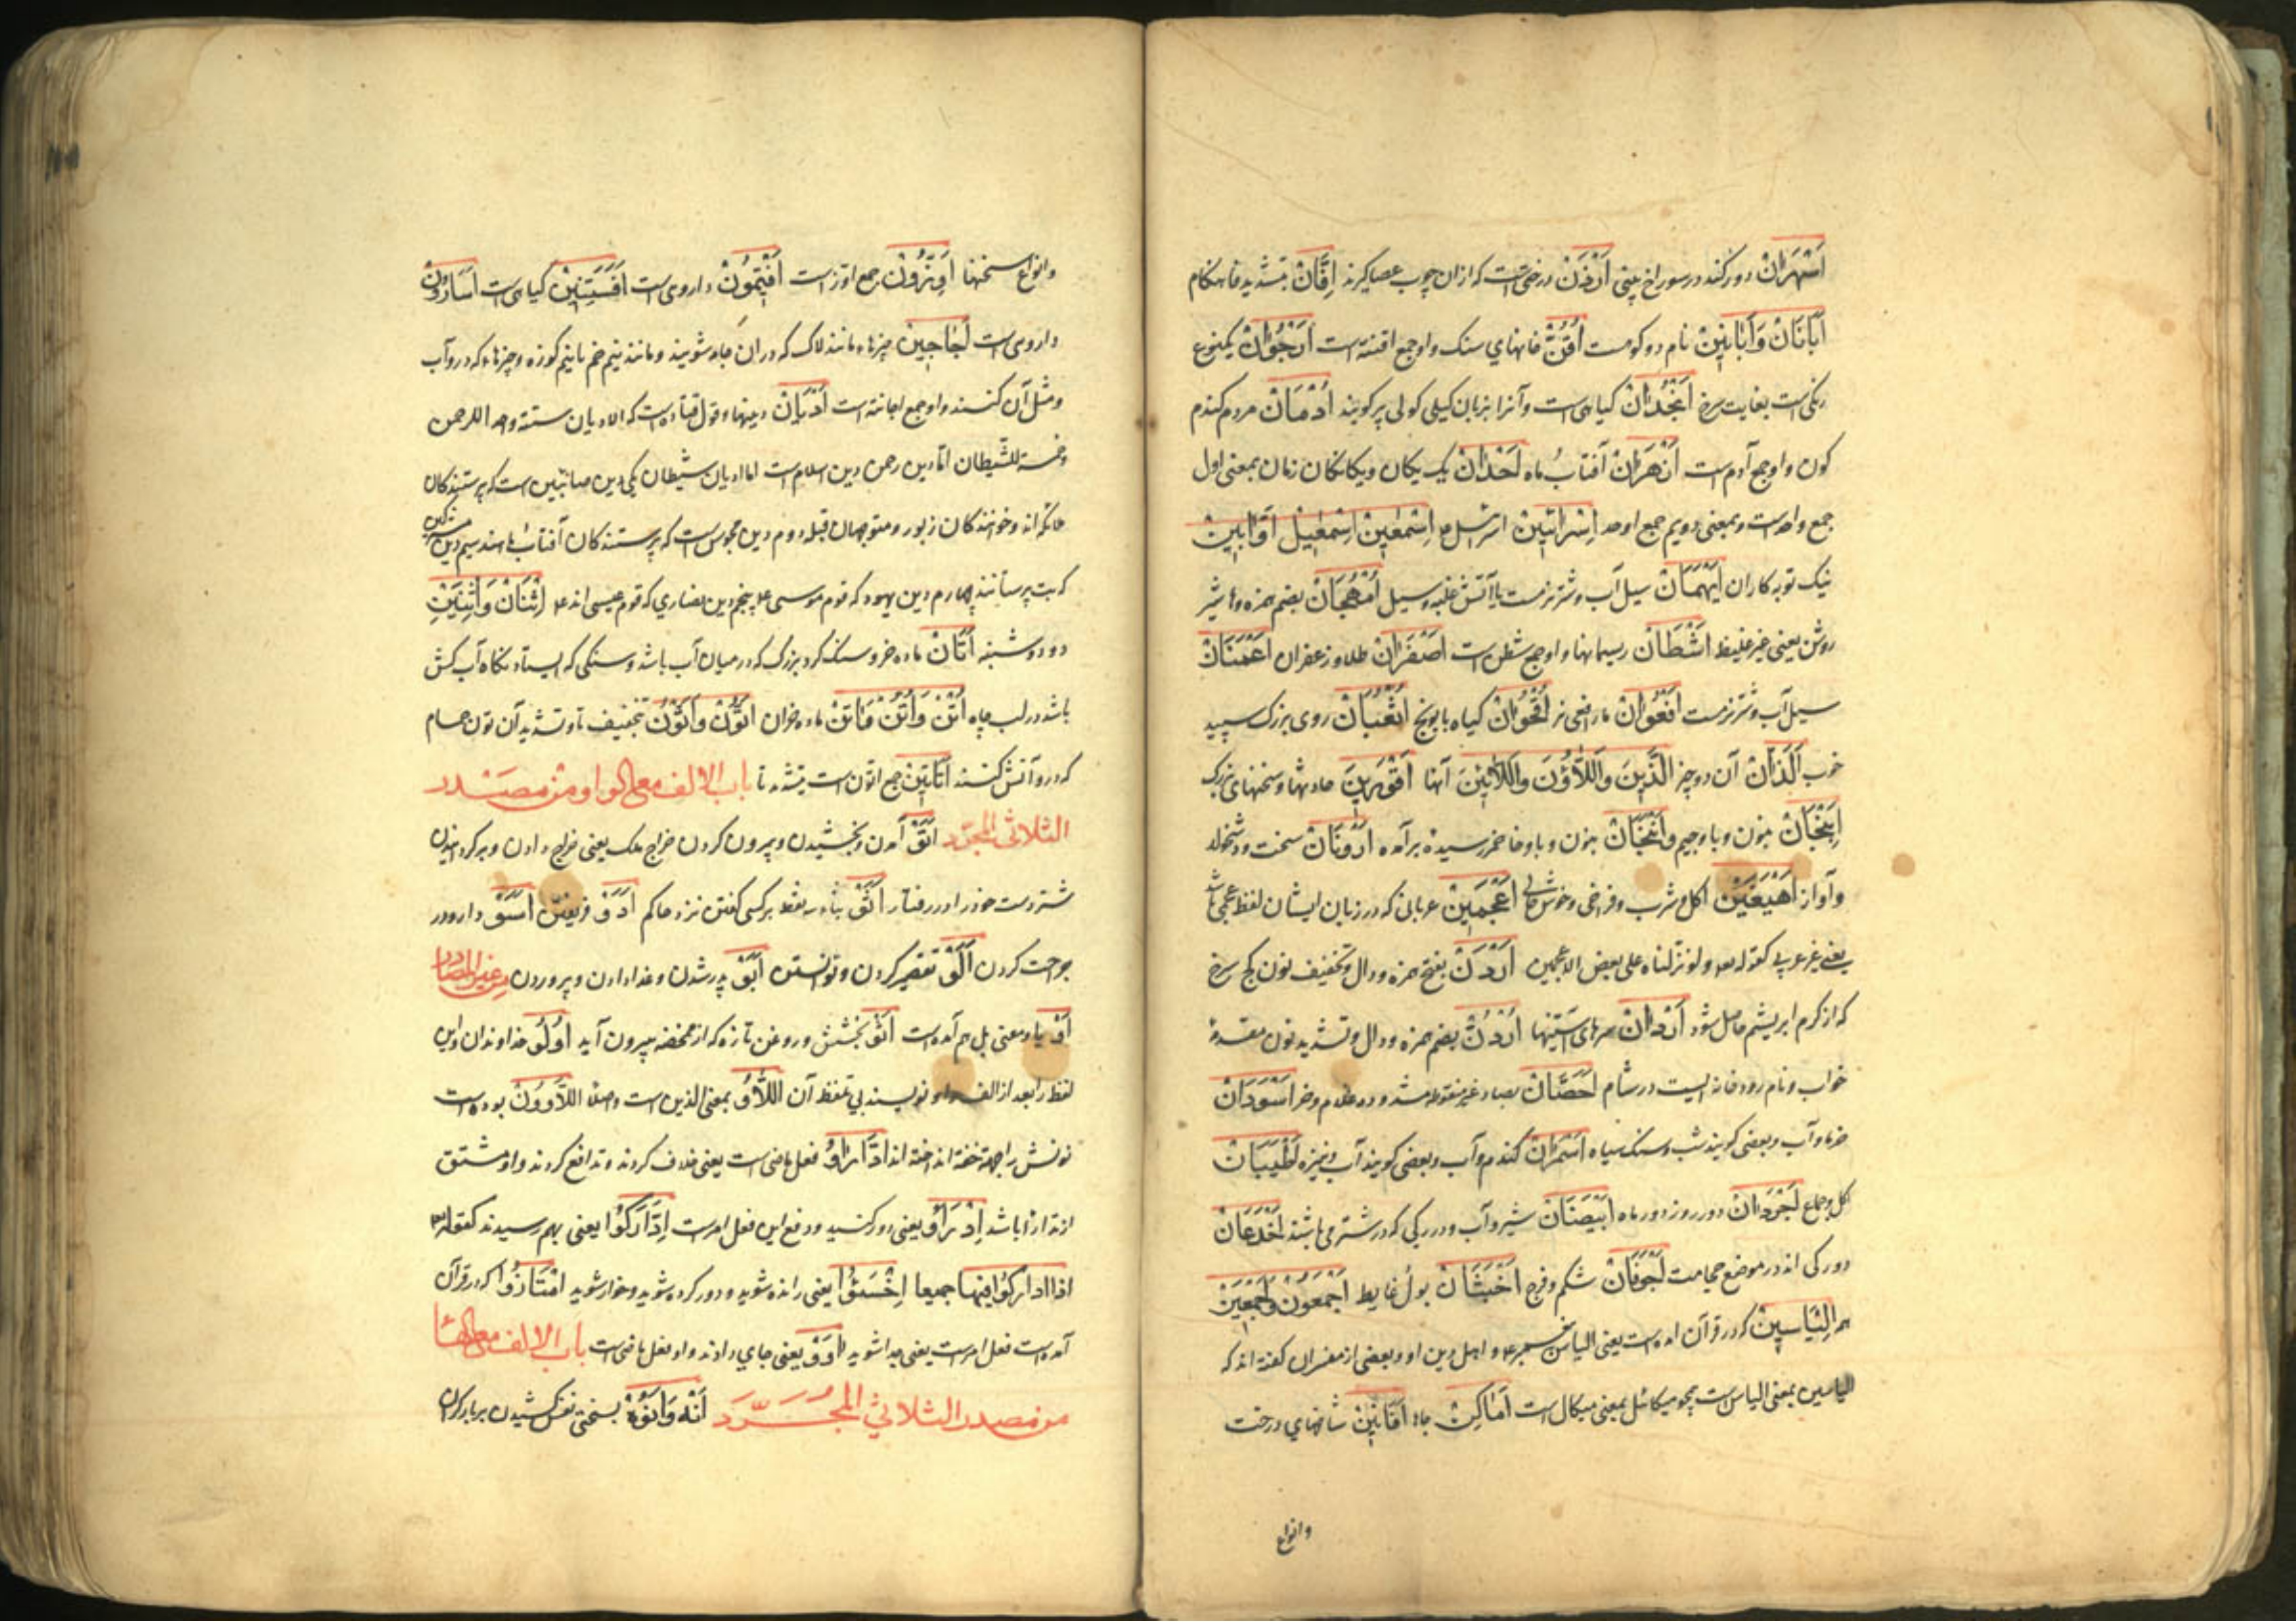 اَسْهَرَانْ دو رکند در سوراخ بینی اَرْزَنْ درختیست که ازان چوب عصا گیرند اِفَّانْ بتشدید فا هنکام
اَبَانَانْ وَاَبَانَیْنْ نام دو کوهست اُقَنْ خانهای سنک و او جمع اقنه است اُرْجُوَانْ یکنوع
رنکیست بغایت سرخ اَنْجُدَانْ کیاهی است و آنرا بزبان کیلی کولی پر کویند اُدْمَانْ مردم کندم
کون و او جمع آدم است اَزْهَرَانْ آفتاب ماه اُحْدَانْ یک یکان و یکانکان زمان بمعنی اول
جمع واحدست و بمعنی دویم جمع اوحد اِسْرَائِیْنْ اِسْمٰعِیْنْ اِسْمٰعِیْلْ اَوَّابِیْنْ
نیک توبه کاران اَیْهَمَانْ سیل آب و شتر نر مست یا آتش غلبه و سیل اُمْهُجَانْ بضم همزه و ها شیر
روشن یعنی غیر غلیظ اَشْطَانْ ریسمانها و او جمع شطن است اَصْفَرَانْ طلا و زعفران اَعْمَیَانْ
سیل آب و شتر نر مست اُفْعُوَانْ مار افعی نر اُقْحُوَانْ کیاه بابونج اُثْعُبَانْ روی بزرک سپید
خوب اَلَّذَانْ آن دو چیز اَلَّذِیْنَ وَاَللَّاؤُنَ وَاللَّائِیْنَ آنها اَقْوَرِیْنَ حادثها و سخنهای بزرک
اَنْبَجَانْ بنون و با و جیم وَاَنْبَخَانْ بنون و با و خا خمیر رسیده برآمده اَرْوَنَانْ سخت و دشخوار
و آواز اَهْیَغَیْنْ اکل و شرب و فراخی و خوش حالی اَعْجَمِیْنْ عربانی که در زبان ایشان لفظ عجمی باشد
یعنی غیر عربی کقوله تعالی و لو نزلناه علی بعض الاعجمین اَرْدَنْ بفتح همزه و دال و تخفیف نون کج سرخ
که از کرم ابریشم حاصل شود اَرْدَانْ سرهای آستینها اُرْدُنّْ بضم همزه و دال و تشدید نون مقدمهٔ
خواب و نام رودخانه ایست در شام اَحَصَّانْ بصاد غیر منقوطه مشدده غلام و خر اَسْوَدَانْ
خرما و آب و بعضی کویند شب و سنک سیاه اَسْمَرَانْ کندم و آب و بعضی کویند آب و نیزه اَطْیَبَانْ
اکل و جماع اَجْرَدَانْ دو روز و دو ماه اَبْیَضَانْ شیر و آب و دو رکی که در شتر می باشند اَخْدَعَانْ
دو رکی اند در موضع حجامت اَجْوَفَانْ شکم و فرج اَخْبَثَانْ بول غایط اَجْمَعُوْنْ وَاَجْمَعِیْنْ
همه اِلْیَاسِیْنْ که در قرآن آمده است یعنی الیاس پیغمبر و اهل دین او و بعضی از مفسران کفته اند که
الیاسین بمعنی الیاس است همچو میکائل بمعنی میکال است اَمَاکِنْ جاها اَفَانِیْنْ شاخهای درخت
و انواع
و انواع سخنها اِوَزُّوْنْ جمع اوز است اَفْتِیْمُوْنْ داروی است اَفْسَنْتِیْنْ کیاهی است اَسَارُوْنْ
داروی است اَجَاجِیْنْ چیزها مانند لاک که دران جامه شویند و مانند نیم خم یا نیم کوزه و چیزها که در و آب
و مثل آن کنند و او جمع اجانة است اَدْیَانْ دینها و قول قتاده است که الادیان ستة واحد للرحمن
و خمسة للشیطان اما دین رحمن دین اسلام است اما ادیان شیطان یکی دین صائبین است که پرستندکان
ملائکه اند و خوانندکان زبور و متوجهان قبله دوم دین مجوس است که پرستندکان آفتاب باشند سیم دین مشرکین
که بت پرستانند چهارم دین یهود که قوم موسی اند پنجم دین نصاری که قوم عیسی اند اِثْنَانْ وَاِثْنَیْنْ
دو و دوشنبه اَتَانْ ماده خر و سنک کرد بزرک که در میان آب باشد و سنکی که ایستادنکاه آب کش
باشد در لب چاه اُتْنْ وَاُتُنْ وَاٰتُنْ ماده خران اَتُوْنْ وَاَتُّوْنْ بتخفیف تا و تشدید آن تون حمام
که در و آتش کنند اَتَاتِیْنْ جمع اتون است بتشدید تا باب الالف مع الواو من مصدر
الثلاثی المجرد اَتْوْ آمدن و بخشیدن و بیرون کردن خراج ملک یعنی خراج دادن و بر کردانیدن
شتر دست خود را در رفتار اَثْوْ بثاء سه نقطه بر کسی کفتن نزد حاکم اَدْوْ فریفتن اَسْوْ دارو در
جراحت کردن اَلْوْ تقصیر کردن و توانستن اَبْوْ پدر شدن و غذا دادن و پروردن من غیر المصادر
اَوْ یا و معنی بل هم آمده است اَتْوْ بخشش و روغن تازه که از مخضه بیرون آید اُولُوْ خداوندان و این
لفظ را بعد از الف واو نویسند بی تلفظ آن اَللَّاؤُ بمعنی الذین است و اصل اللَّاوُوْنْ بوده است
نونش را بجهة خفة انداخته اند اِدَّارَاُوْ فعل ماضی است یعنی خلاف کردند و تدافع کردند و او مشتق
از تدارأ باشد اِدْرَاُوْ یعنی دور کنید و دفع این فعل امرست اِدَّارَکُوْا یعنی بهم رسیدند کقوله تعالی
اذا ادارکوا فیها جمیعا اِخْسَئُوْا یعنی رانده شوید و دور کرده شوید و خوار شوید اِمْتَازُوْا که در قرآن
آمده است فعل امرست یعنی جدا شوید اٰوَوْ یعنی جای دادند و او فعل ماضی است باب الالف مع الهاء
من مصدر الثلاثی المجرد اَنْهْ وَاُنُوْهْ بسختی نفس کشیدن بر بار کران